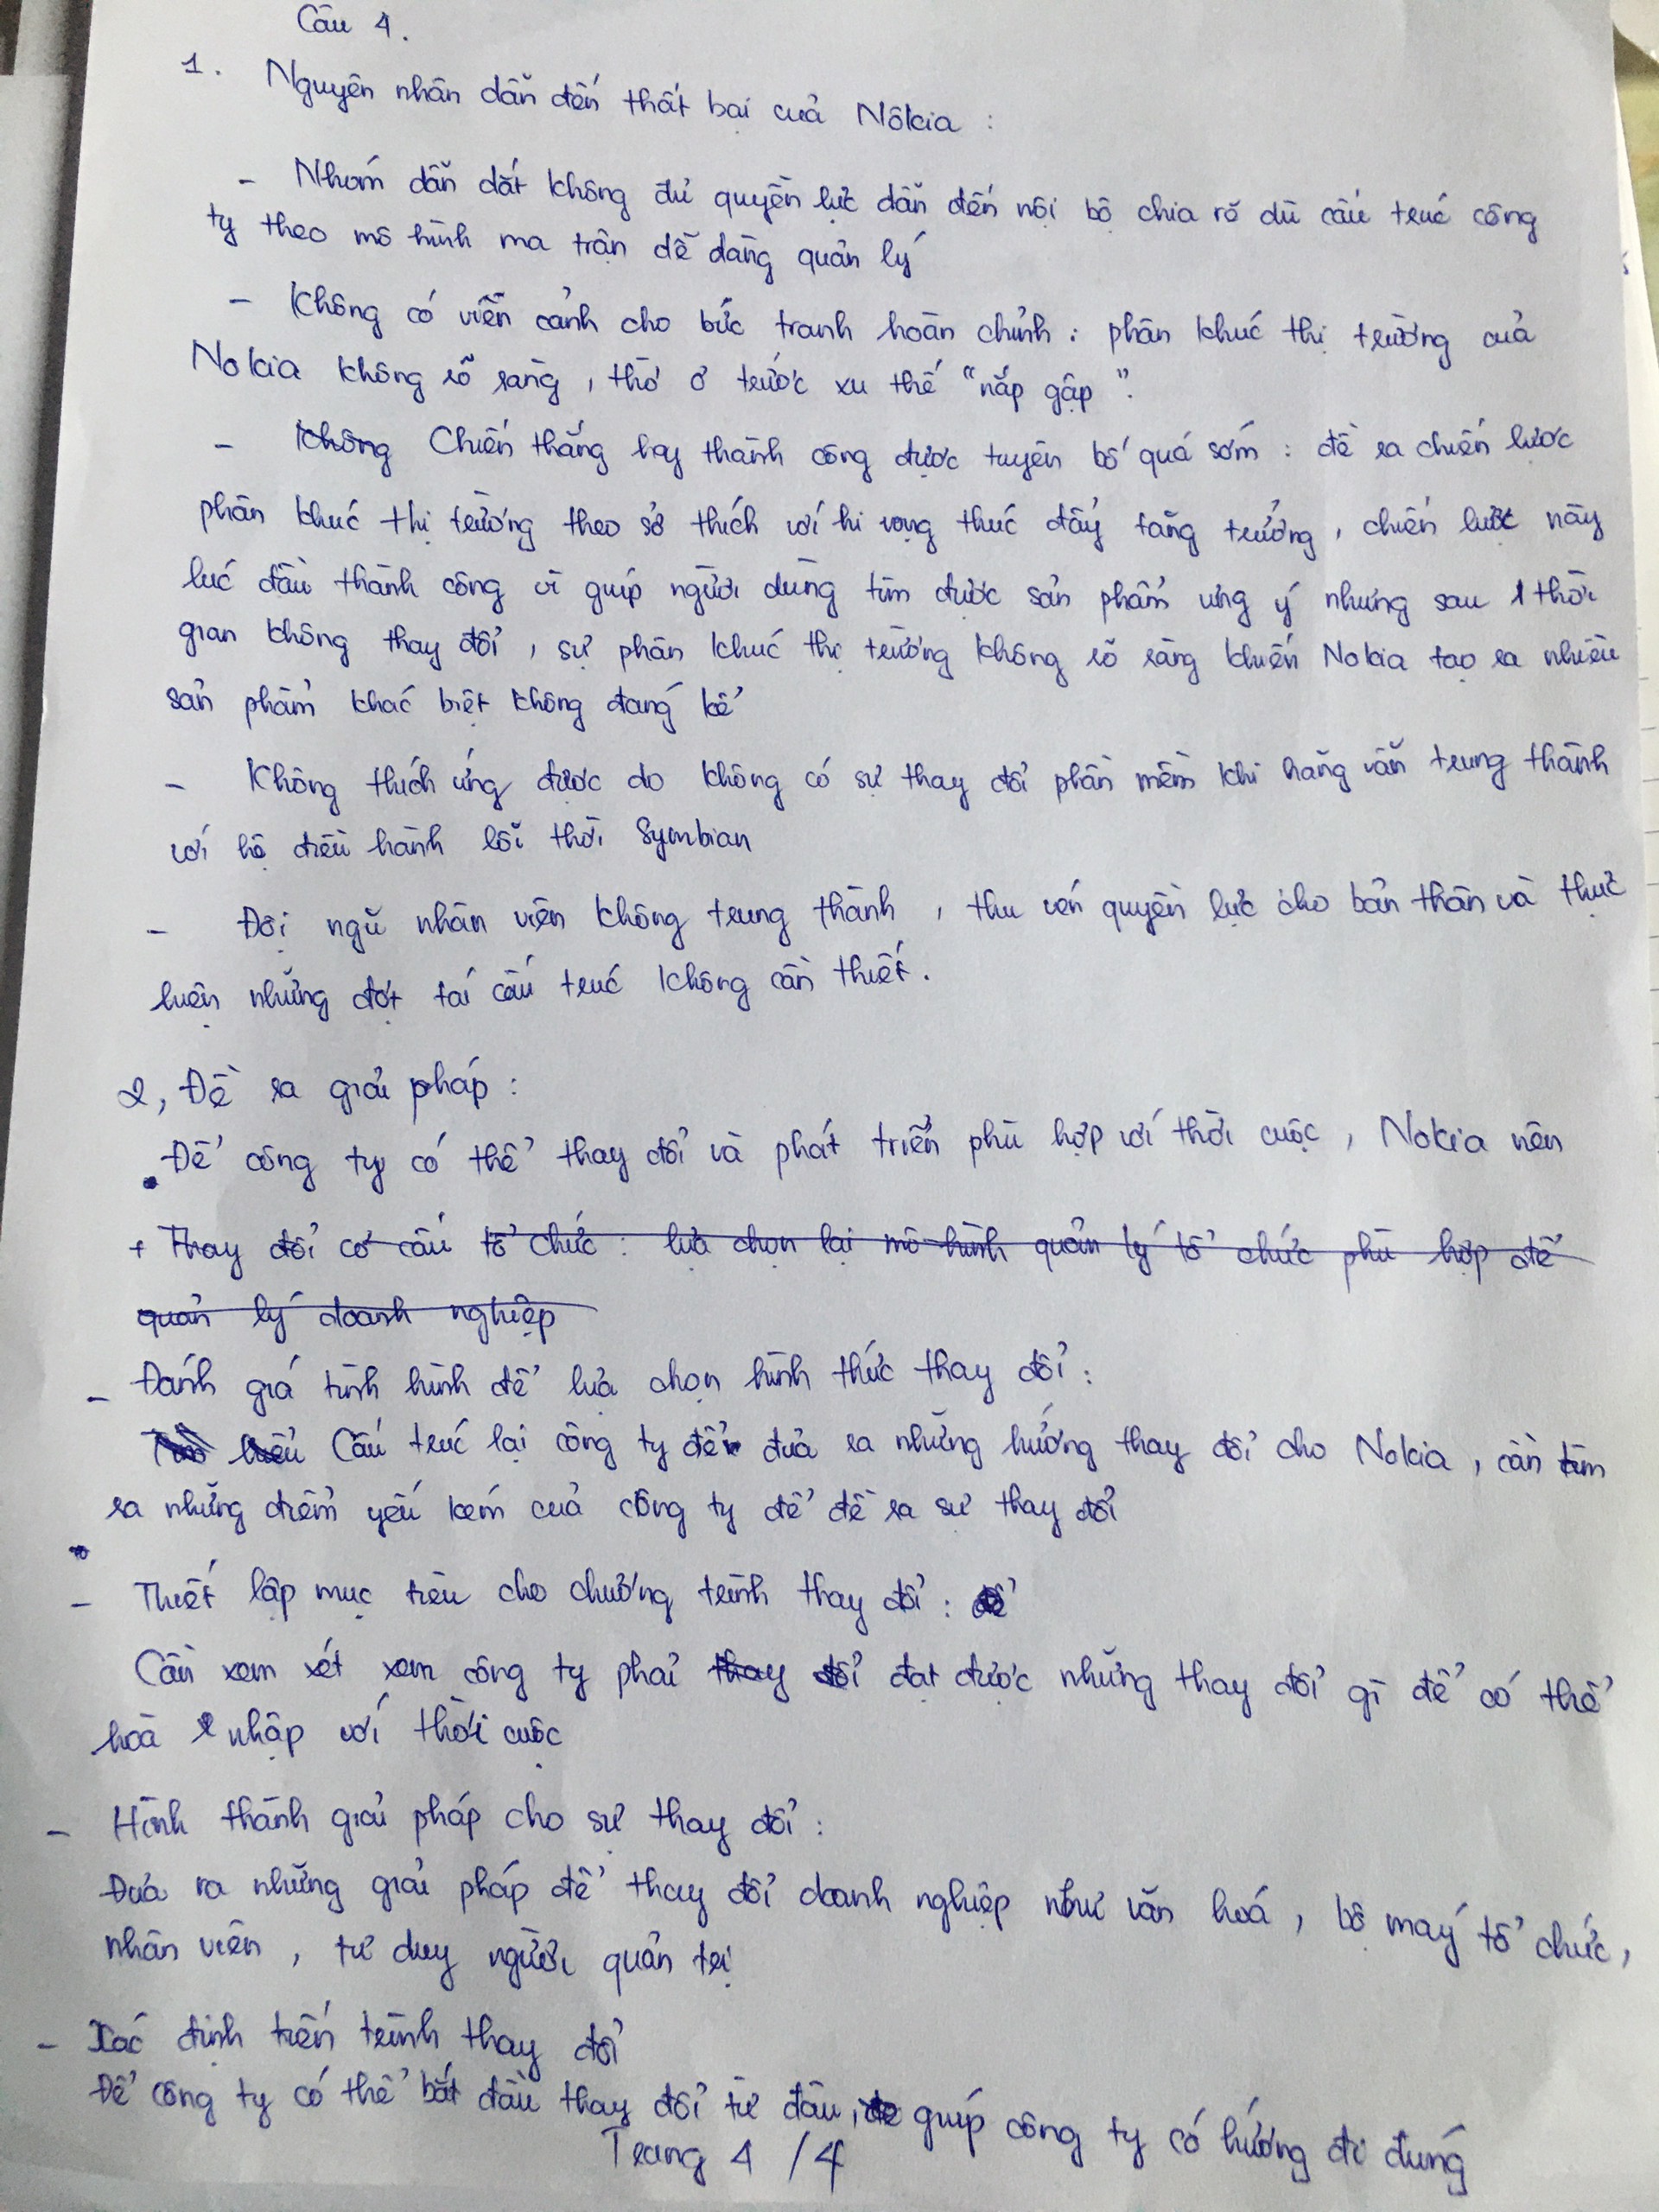 Câu 4.
1. Nguyên nhân dẫn đến thất bại của Nôkia :
- Nhóm dẫn dắt không đủ quyền lực dẫn đến nội bộ chia rẽ dù cấu trúc công
ty theo mô hình ma trận dễ dàng quản lý
- Không có viễn cảnh cho bức tranh hoàn chỉnh : phân khúc thị trường của
Nokia không rõ ràng, thờ ơ trước xu thế "nắp gập".
- Không Chiến thắng hay thành công được tuyên bố quá sớm : đề ra chiến lược
phân khúc thị trường theo sở thích với hi vọng thúc đẩy tăng trưởng, chiến lược này
lúc đầu thành công vì giúp người dùng tìm được sản phẩm ưng ý nhưng sau 1 thời
gian không thay đổi, sự phân khúc thị trường không rõ ràng khiến Nokia tạo ra nhiều
sản phẩm khác biệt không đáng kể
- Không thích ứng được do không có sự thay đổi phần mềm khi hãng vẫn trung thành
với hệ điều hành lỗi thời Symbian
- Đội ngũ nhân viên không trung thành, thu vén quyền lực cho bản thân và thực
hiện những đợt tái cấu trúc không cần thiết.
2, Đề ra giải pháp :
Để công ty có thể thay đổi và phát triển phù hợp với thời cuộc, Nokia nên
+ Thay đổi cơ cấu tổ chức : lựa chọn lại mô hình quản lý tổ chức phù hợp để
quản lý doanh nghiệp
- Đánh giá tình hình để lựa chọn hình thức thay đổi :
Cấu trúc lại công ty để đưa ra những hướng thay đổi cho Nokia, cần tìm
ra những điểm yếu kém của công ty để đề ra sự thay đổi
- Thiết lập mục tiêu cho chương trình thay đổi : để
Cần xem xét xem công ty phải thay đổi đạt được những thay đổi gì để có thể
hoà nhập với thời cuộc
- Hình thành giải pháp cho sự thay đổi :
Đưa ra những giải pháp để thay đổi doanh nghiệp như văn hoá, bộ máy tổ chức,
nhân viên, tư duy người quản trị
- Xác định tiến trình thay đổi
Để công ty có thể bắt đầu thay đổi từ đâu, để giúp công ty có hướng đi đúng
Trang 4 / 4